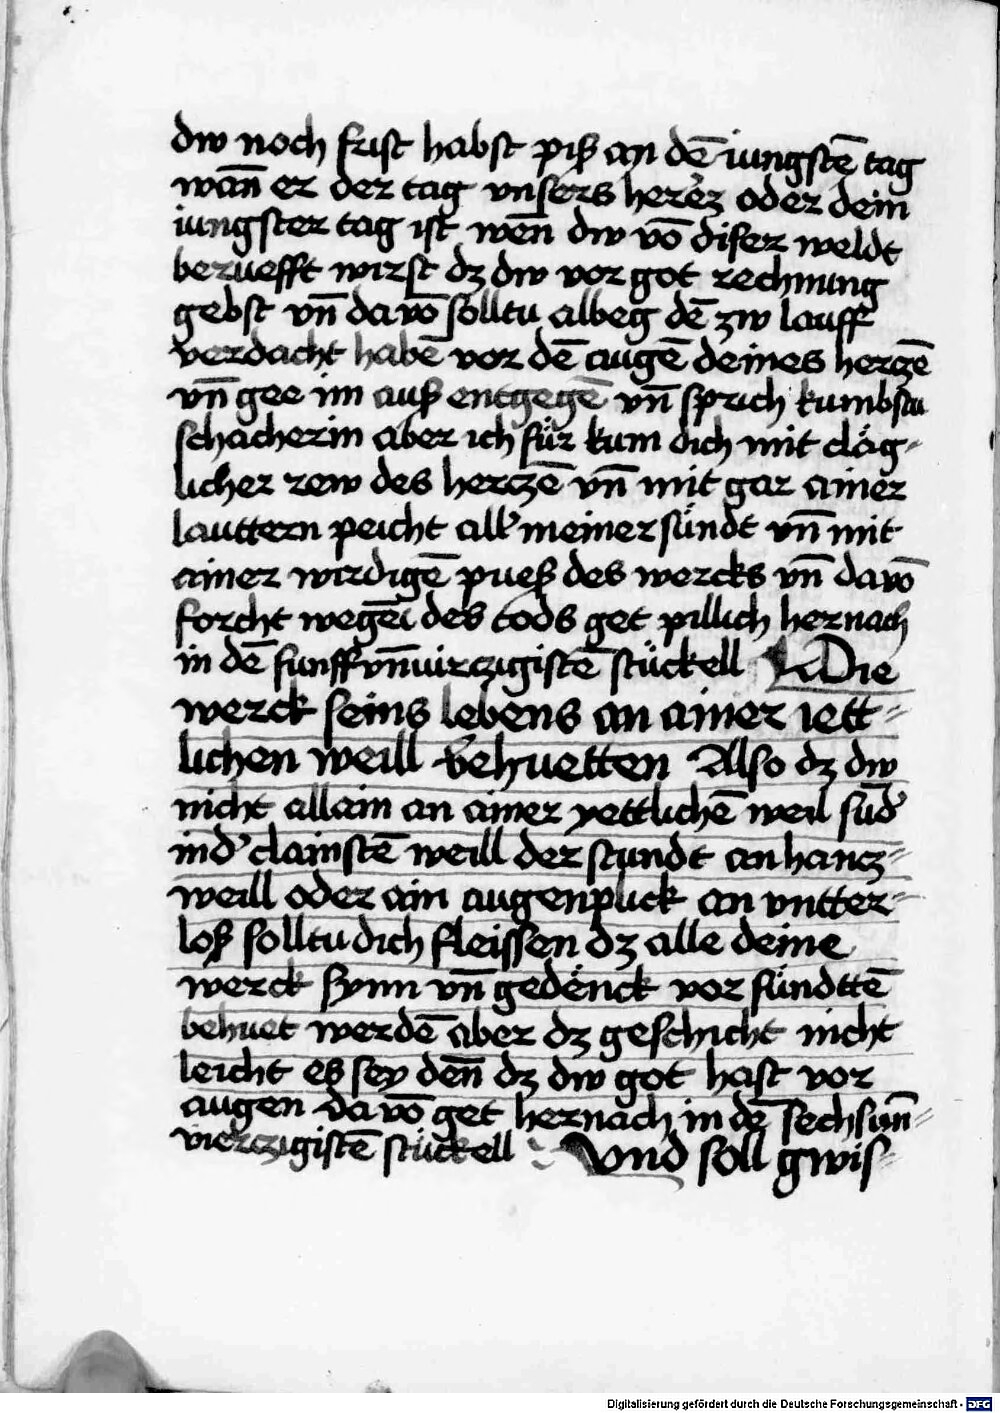 dw noch frist habst piß an dē iungstē tag
wān er der tag vnsers herēz oder dein
iungster tag ist wēn dw vō diser weldt
beruefft wirst dz dw vor got rechnung
gebst vn̄ davō solltu albeg dē zw lauff
verdacht habē vor dē augē deines herczē
vn̄ gee im auß entgegē vn̄ sprich kumbstu
schacherin aber ich für kum dich mit cläg⸗
licher rew des herczē vn̄ mit gar ainer
lauttern peicht all' meiner sündt vn̄ mit
ainer wirdigē pueß des wercks vn̄ davō
forcht wegē des tods get pillich hernach
in dē funffvn̄virczigistē stückell Die
werck seins lebens an ainer iett⸗
lichen weill behuetten Also dz dw
nicht allain an ainer yettlichē weil sūd'
ind' clainstē weill der stundt an hancz⸗
weill oder ain augenplick an vntter⸗
loß solltu dich fleissen dz alle deine
werck synn vn̄ gedënck vor sündttē
behuet werdē aber dz geschicht nicht
leicht es sey dēn dz dw got hast vor
augen davō get hernach in dē sechsūn⸗
vierczigistē stückell Vnd soll gwis⸗
Digitalisierung gefördert durch die Deutsche Forschungsgemeinschaft - DFG